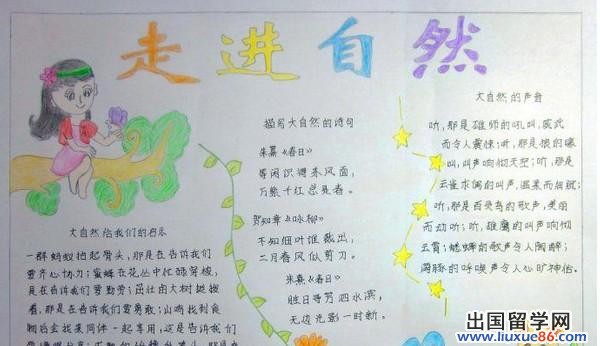 走进自然
大自然给我们的启示
一群蚂蚁抬起骨头,那是在告诉我们
要齐心协力;蜜蜂在花丛中忙碌穿梭,
是在告诉我们要勤劳;茁壮的大树挺拔
着,那是在告诉我们要勇敢;山鸡找到食
物后会找来同伴一起享用,这是告诉我们
描写大自然的诗句
朱熹《春日》
等闲识得东风面,
万紫千红总是春。
贺知章《咏柳》
不知细叶谁裁出,
二月春风似剪刀。
朱熹《春日》
胜日寻芳泗水滨,
无边光影一时新。
大自然的声音
听,那是雄师的吼叫,威武
而令人震惊;听,那是狼的嚎
叫,叫声响彻天空;听,那是
云雀求偶的叫声,温柔而细腻;
听,那是百灵鸟的歌声,美丽
而动听;听,雄鹰的叫声响彻
云霄;蟋蟀的歌声令人陶醉;
海豚的呼唤声令人心旷神怡。
出国留学网
www.liuxue86.com